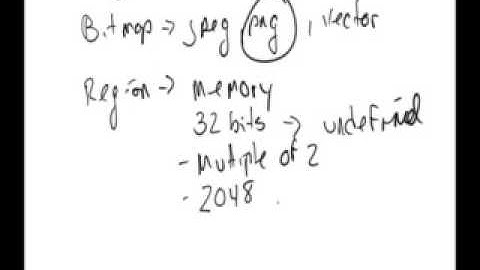 Bitmap -> jpeg png, vector
Region -> memory
32 bits -> undefined
- Mutiple of 2
- 2048